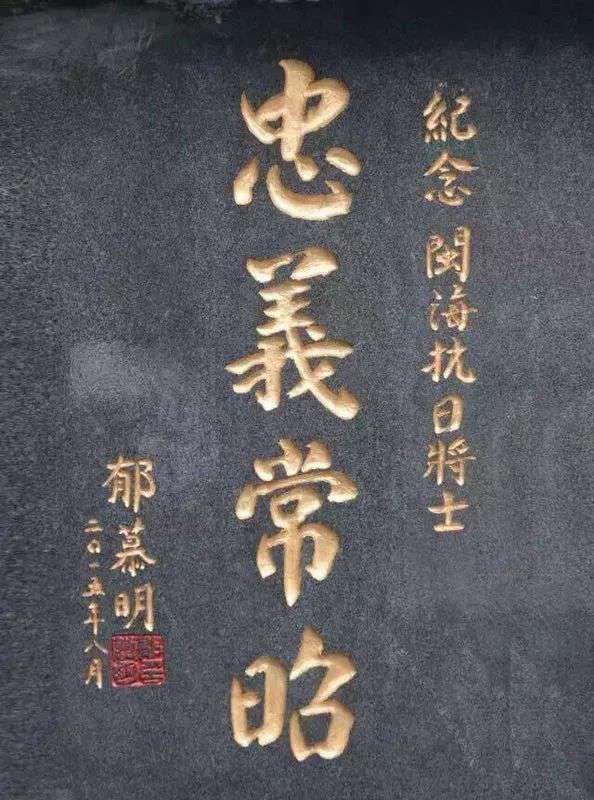 紀念 閩海抗日將士
忠義常昭
郁慕明
二〇一五年八月